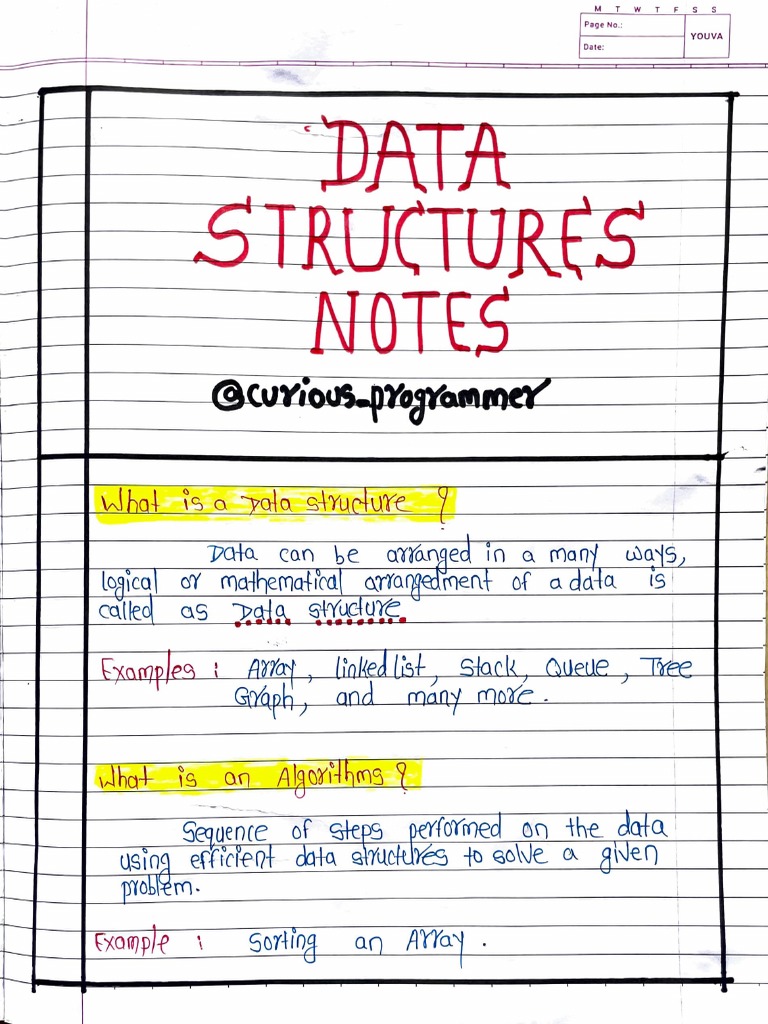 M T W T F S S
Page No.:
YOUVA
Date:
DATA
STRUCTURES
NOTES
@curious_programmer
What is a Data structure ?
Data can be arranged in a many ways,
logical or mathematical arrangedment of a data is
called as Data structure.
Examples : Array, linked list, Stack, Queue, Tree
Graph, and many more.
What is an Algorithms ?
Sequence of steps performed on the data
using efficient data structures to solve a given
problem.
Example : Sorting an Array.